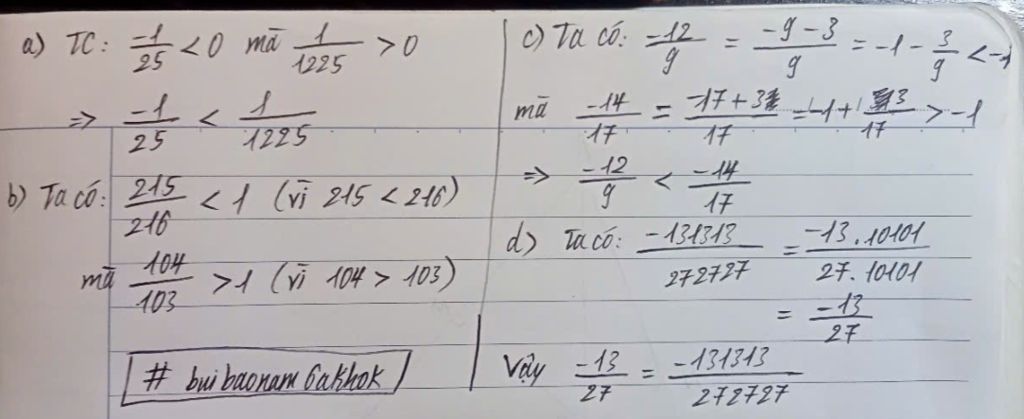 a) TC: -1/25 < 0 mà 1/1225 > 0
=> -1/25 < 1/1225
b) Ta có: 215/216 < 1 (vì 215 < 216)
mà 104/103 > 1 (vì 104 > 103)
# buibaonam 6akhok
c) Ta có: -12/9 = -9-3/9 = -1 - 3/9 < -1
mà -14/17 = -17+3/17 = -1 + 3/17 > -1
=> -12/9 < -14/17
d) Ta có: -131313/272727 = -13.10101/27.10101
= -13/27
Vậy -13/27 = -131313/272727